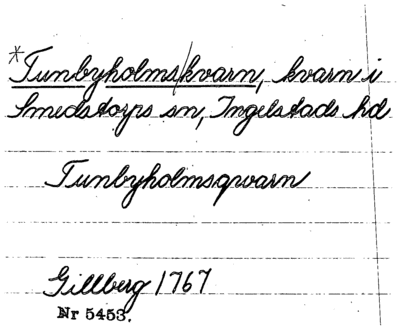 *Tunbyholms/kvarn, kvarn i
Smedstorps sn, Ingelstads hd
Tunbyholmsqvarn
Gillberg 1767
Nr 5453.